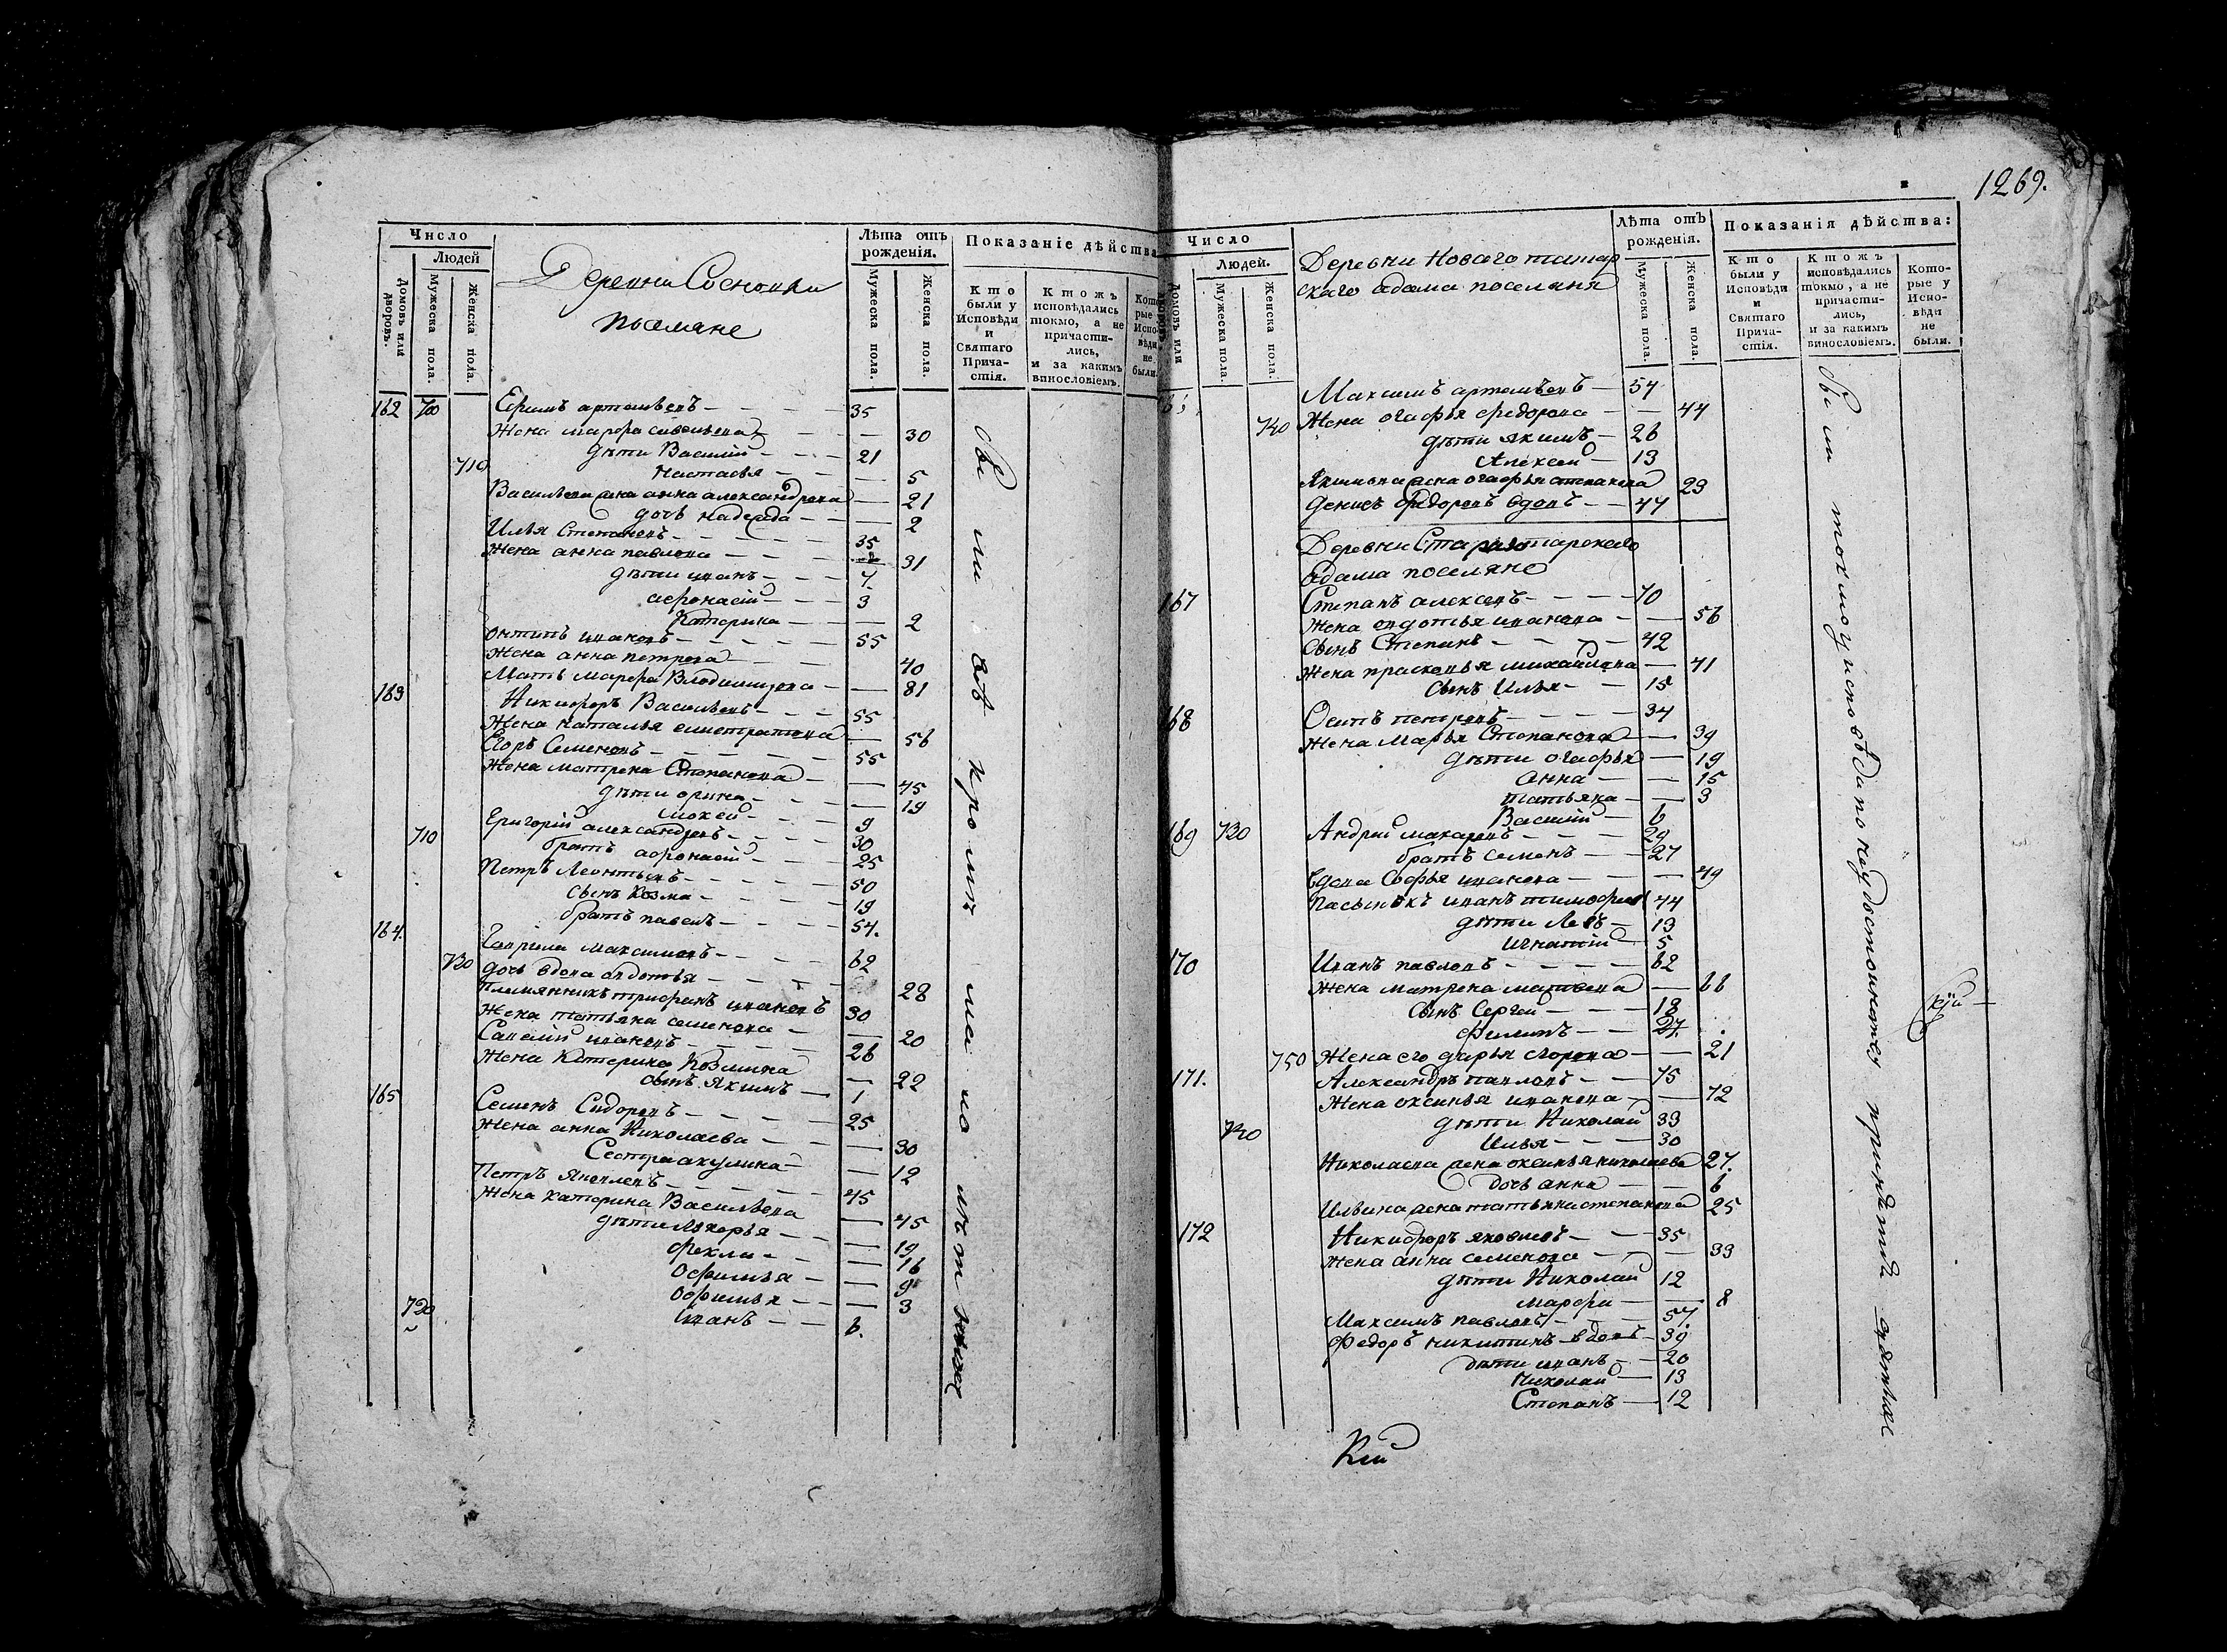 Число
Людей
Домовъ или дворовъ.
Мужеска пола.
Женска пола.
Деревни Сосновки
поселяне
Лѣта отъ рожденія.
Мужеска пола.
Женска пола.
Показаніе дѣйства
Кто были у Исповѣди и Святаго Причастія.
Ктожъ исповѣдались токмо, а не причастились, и за какимъ винословіемъ.
Которые у Исповѣди не были.
162 700 Ефимъ артемьевъ 35
Жена марфа савельева — 30
дѣти Василій 21
710 настасья — 5
Васильева жена анна александрова — 21
дочь надежда — 2
Илья Степановъ 35
Жена анна павлова — 31
дѣти иванъ 7
афонасій 3
Катерина — 2
онтипъ ивановъ 55
Жена анна петрова 40
Мать марфа Владимирова — 81
163 Никифоръ Васильевъ 55
Жена наталья — 56
Егоръ Семеновъ 55
Жена матрена Степанова — 45
дѣти орина — 19
мокей 9
710 Григорій александровъ 30
братъ афонасій 25
Петръ Леонтьевъ 50
сынъ Козма 19
братъ павелъ 54.
164. Гаврила максимовъ 62
720 дочь вдова авдотья 28
Племянникъ трифанъ ивановъ 30
Жена татьяна семенова — 20
Савелій ивановъ 26
Жена Катерина Козмина — 22
сынъ Якимъ 1
165 Семенъ Сидоровъ 25
Жена анна Николаева — 30
Сестра акулина — 12
Петръ Яковлевъ 45
Жена катерина Васильева — 45
дѣти Лукерья — 19
Фекла — 16
Офимья — 9
Офимья — 3
720 Иванъ 6.
кроме
1269.
Число
Людей.
Домовъ или
Мужеска пола.
Женска пола.
Деревни Новаго татар
скаго адама поселяня
Лѣта отъ рожденія.
Мужеска пола.
Женска пола.
Показанія дѣйства:
Кто были у Исповѣди и Святаго Причастія.
Ктожъ исповѣдались токмо, а не причастились, и за какимъ винословіемъ.
Которые у Исповѣди не были.
Максимъ артемьевъ 54
740 Жена огафья федорова — 44
дѣти якимъ 26
Алексей 13
Якимова жена огафья степанова 23
Денисъ Федоровъ вдовъ 44
Деревни
адама поселяне
167 Степанъ алексеевъ 70
Жена овдотья иванова — 56
сынъ Степанъ 42
Жена прасковья михайлова — 41
сынъ Илья 15
168 Осипъ петровъ 34
Жена Марья Степанова — 39
дѣти огафья — 19
анна — 15
татьяна — 3
Василій 6
169 730 Андрей макаровъ 29
братъ семенъ 27
вдова Софья иванова — 49
Пасынокъ иванъ тимофеевъ 44
дѣти Левъ 13
игнатій 5
170 Иванъ павловъ 62
Жена матрена матвеева — 66
сынъ Сергей 18
Филипъ 27.
750 Жена его дарья егорова — 21
171. Александръ павловъ 75
Жена оксинья иванова — 72
дѣти Николай 33
Илья 30
Николаева жена оксинья николаева 27.
дочь анна — 6
Ильина жена татьяна степанова 25
172 Никифоръ яковлевъ 35
Жена анна семенова — 33
дѣти Николай 12
марфа — 8
Максимъ павловъ 57.
Федоръ никитинъ вдовъ 39
дѣти иванъ 20
Николай 13
Степанъ 12
токмо у исповеди по недостоинству принятия святыхъ